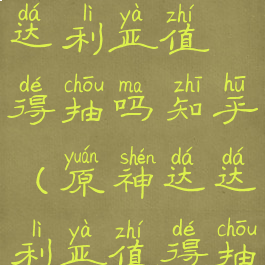 dá lì yà zhí
达利亚值
dé chōu ma zhī hū
得抽吗知乎
yuán shén dá dá
(原神达达
lì yà zhí dé chōu
利亚值得抽